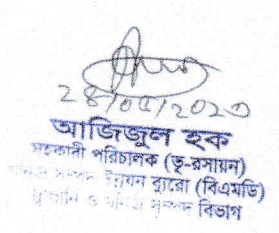 28/05/2023
আজিজুল হক
সহকারী পরিচালক (ভূ-রসায়ন)
খনিজ সম্পদ উন্নয়ন ব্যুরো (বিএমডি)
জ্বালানি ও খনিজ সম্পদ বিভাগ